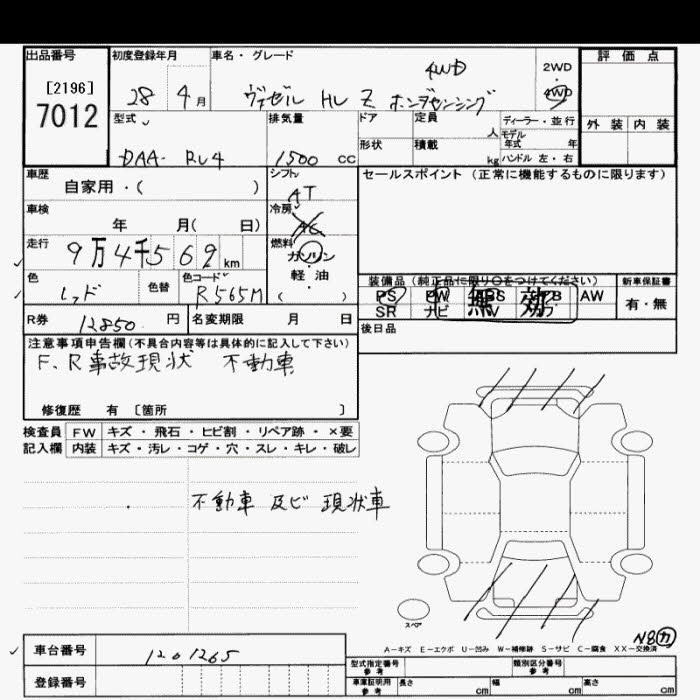 出品番号 初度登録年月 車名・グレード 4WD 2WD ・ 4WD 評価点
[2196]
7012
28 4月 ヴェゼル HV Z ホンダセンシング
型式 排気量 ドア 定員 人 ディーラー・並行 外装 内装
モデル年式 年
DAA- RU4 1500 cc 形状 積載 kg ハンドル 左・右
車歴 シフト セールスポイント (正常に機能するものに限ります)
自家用・( ) AT
車検 冷房
年 月( 日) AC
走行 燃料
9万4千569km ガソリン
・
軽油
( )
色 色替 色コード 装備品(純正品に限り○をつけてください) 新車保証書
レッド R565M PS PW 無効 AW 有・無
SR ナビ
R券 12850円 名変期限 月 日 後日品
注意事項申告欄(不具合内容等は具体的に記入して下さい)
F、R事故現状 不動車
修復歴 有 [箇所 ]
検査員 FW キズ・飛石・ヒビ割・リペア跡・×要
記入欄 内装 キズ・汚レ・コゲ・穴・スレ・キレ・破レ
不動車 及ビ 現状車
スペア
N8 カ
A-キズ E-エクボ U-凹み W-補修跡 S-サビ C-腐食 XX-交換済
車台番号 1201265 型式指定番号 参考 類別区分番号 参考
登録番号 車庫証明用 参考 長さ cm 幅 cm 高さ cm